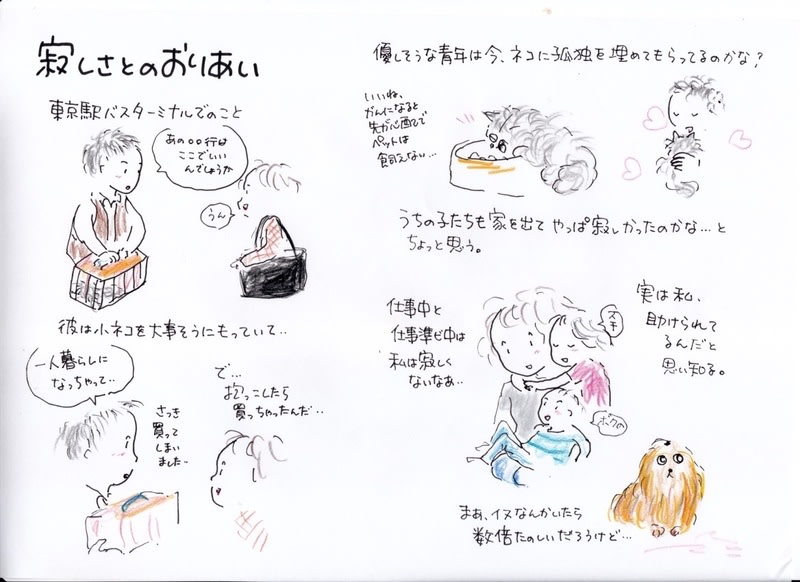 寂しさとのおりあい
東京駅バスターミナルでのこと
あの〇〇行は
ここでいい
んでしょうか
うん
彼は小ネコを大事そうにもっていて..
一人暮らしに
なっちゃって..
さっき
買って
しまい
ました..
で...
抱っこしたら
買っちゃったんだ..
優しそうな青年は今、ネコに孤独を埋めてもらってるのかな?
いいね、
がんになると
先が心配で
ペットは
飼えない...
うちの子たちも家を出て やっぱ寂しかったのかな...と
ちょっと思う。
仕事中と
仕事準備中は
私は寂しく
ないなぁ..
スキ
ボクの
実は私、
助けられて
るんだと
思い知る。
まあ、イヌなんかいたら
数倍たのしいだろうけど...